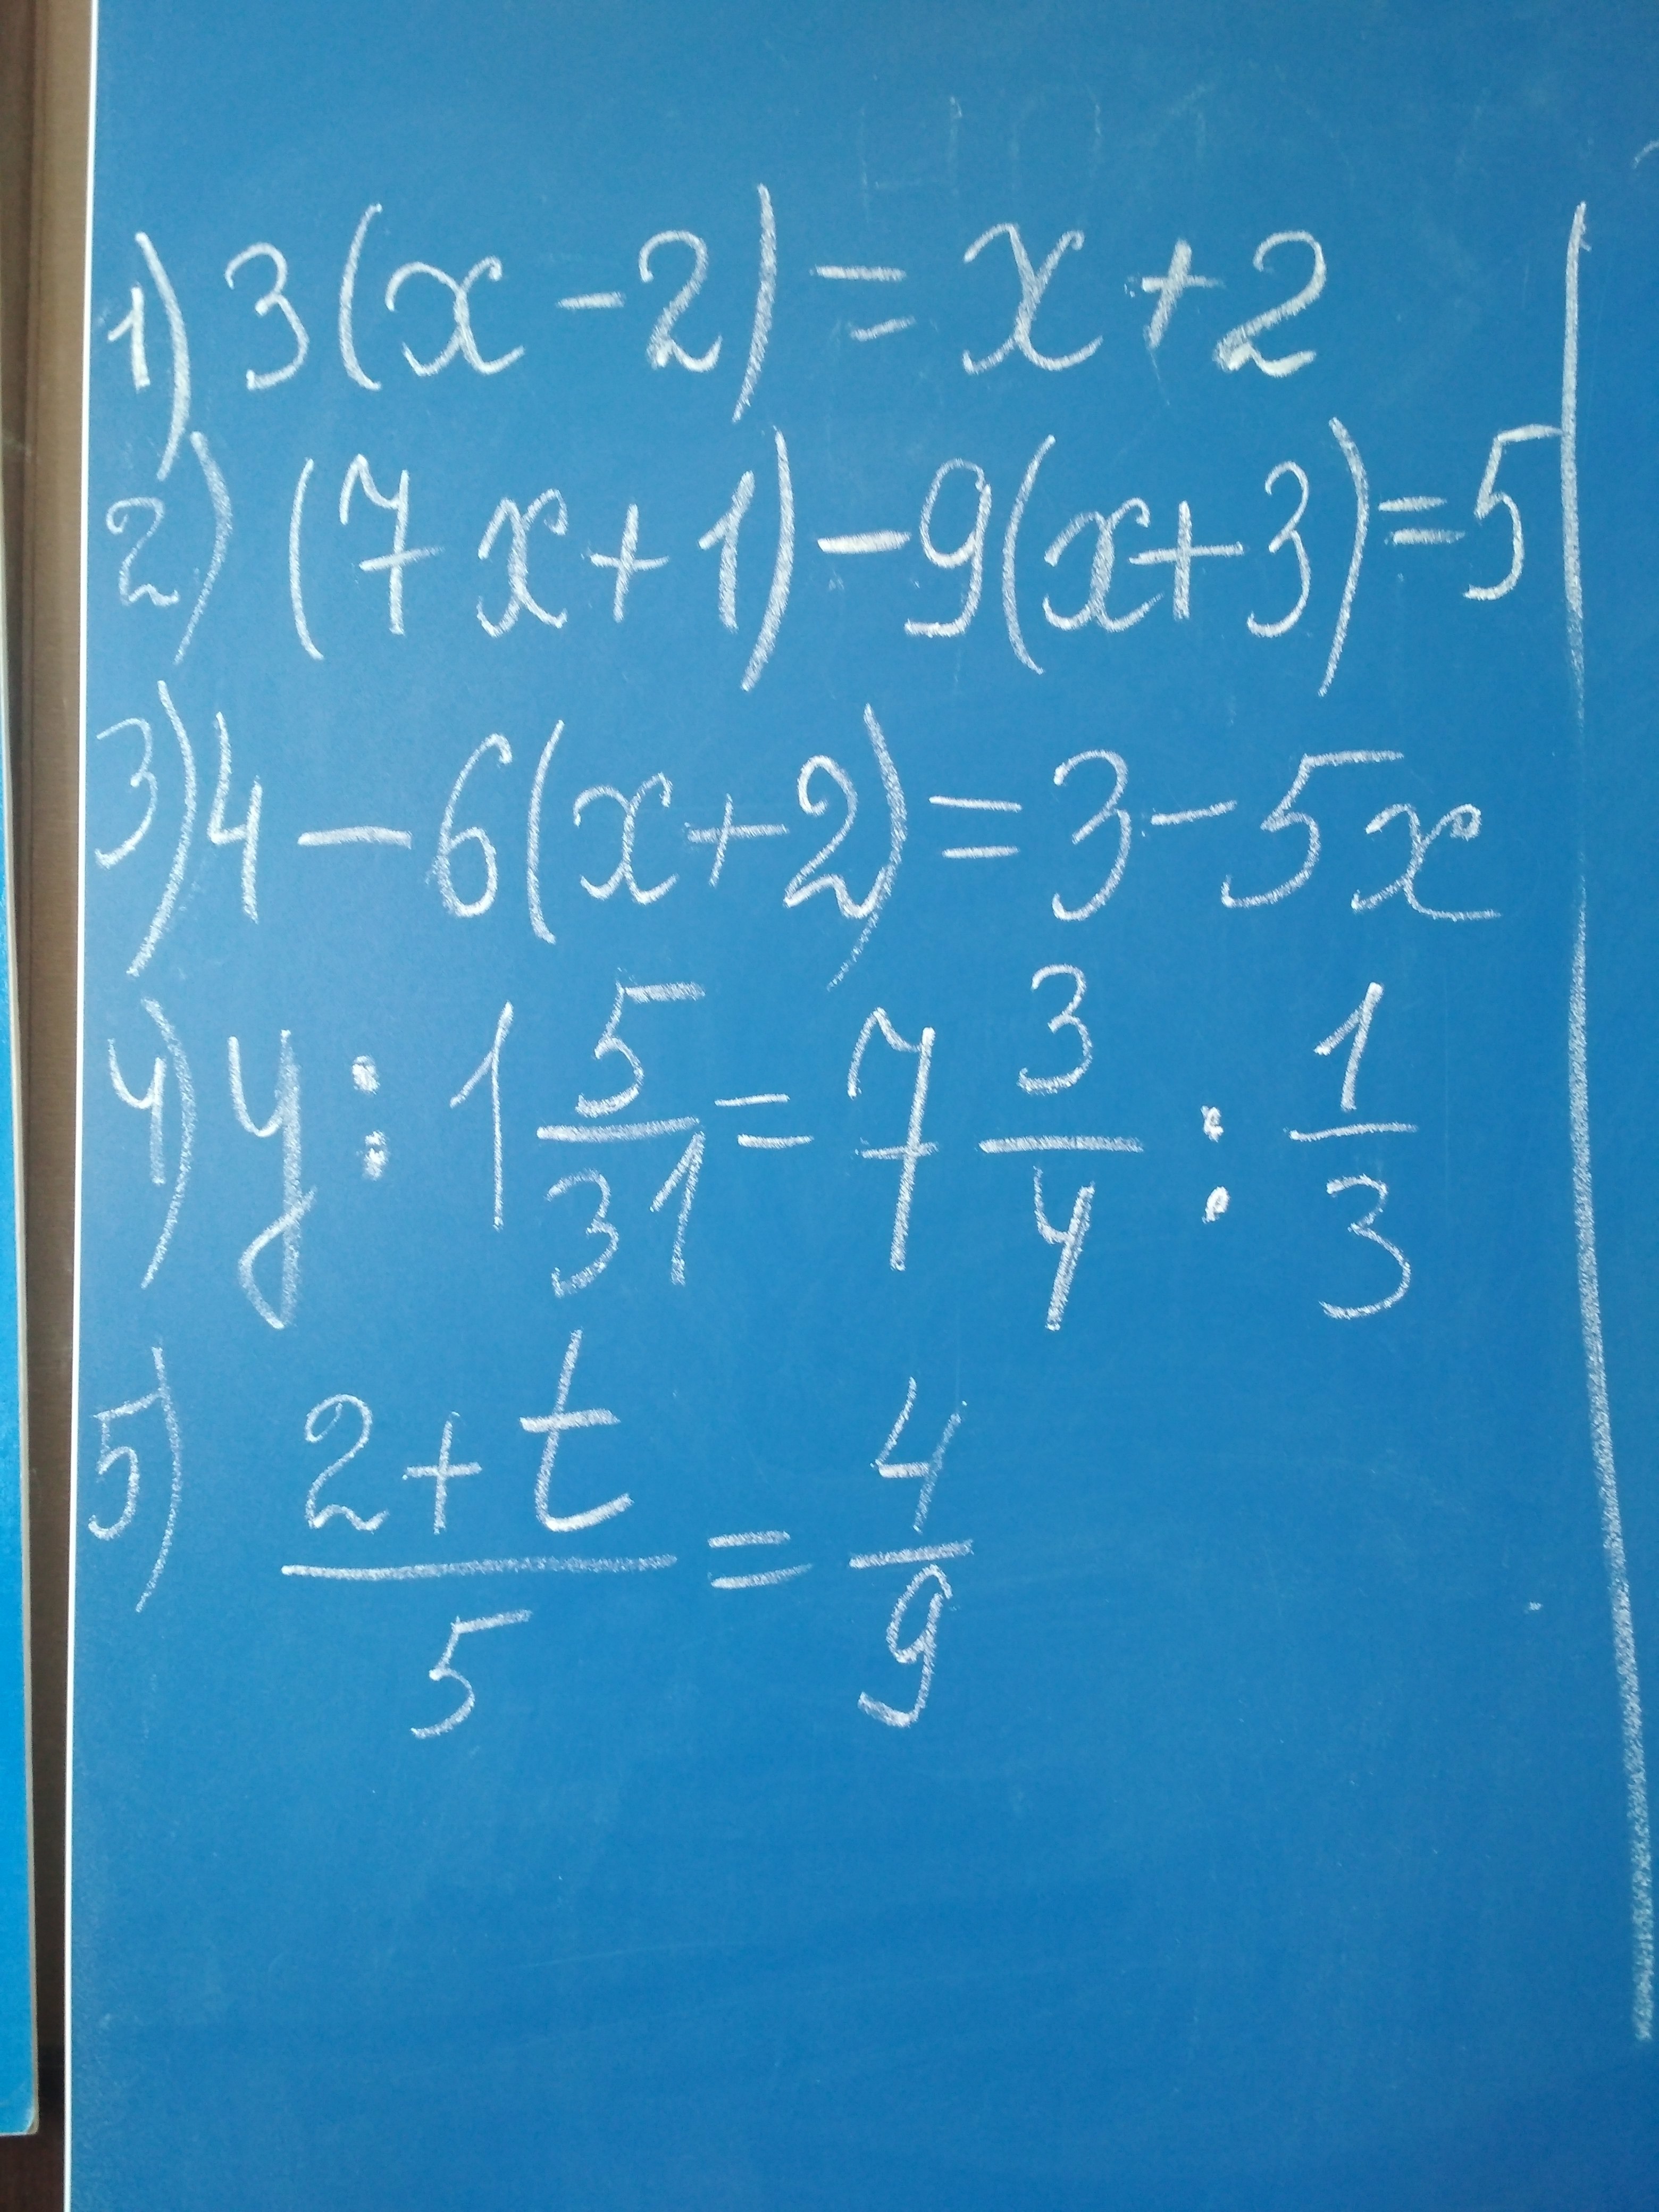 1) 3(x-2)=x+2
2) (7x+1)-9(x+3)=5
3) 4-6(x+2)=3-5x
4) y:1 5/31=7 3/4:1/3
5) (2+t)/5=4/9